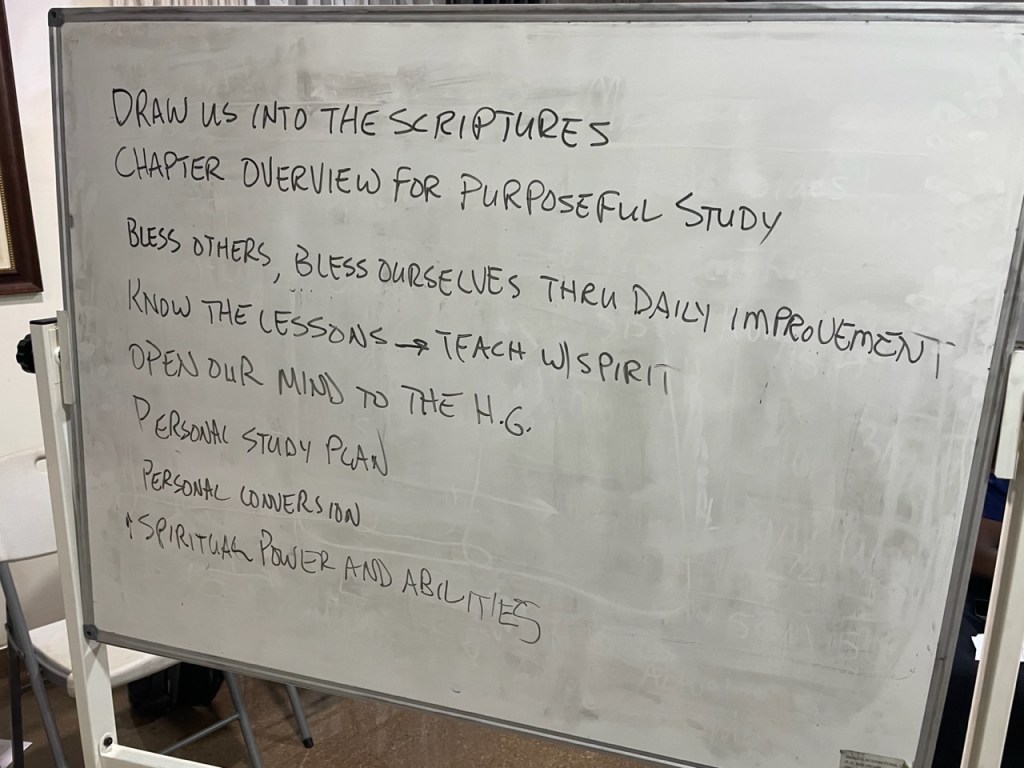 DRAW US INTO THE SCRIPTURES
CHAPTER OVERVIEW FOR PURPOSEFUL STUDY
BLESS OTHERS, BLESS OURSELVES THRU DAILY IMPROVEMENT
KNOW THE LESSONS → TEACH W/ SPIRIT
OPEN OUR MIND TO THE H.G.
PERSONAL STUDY PLAN
PERSONAL CONVERSION
↑ SPIRITUAL POWER AND ABILITIES